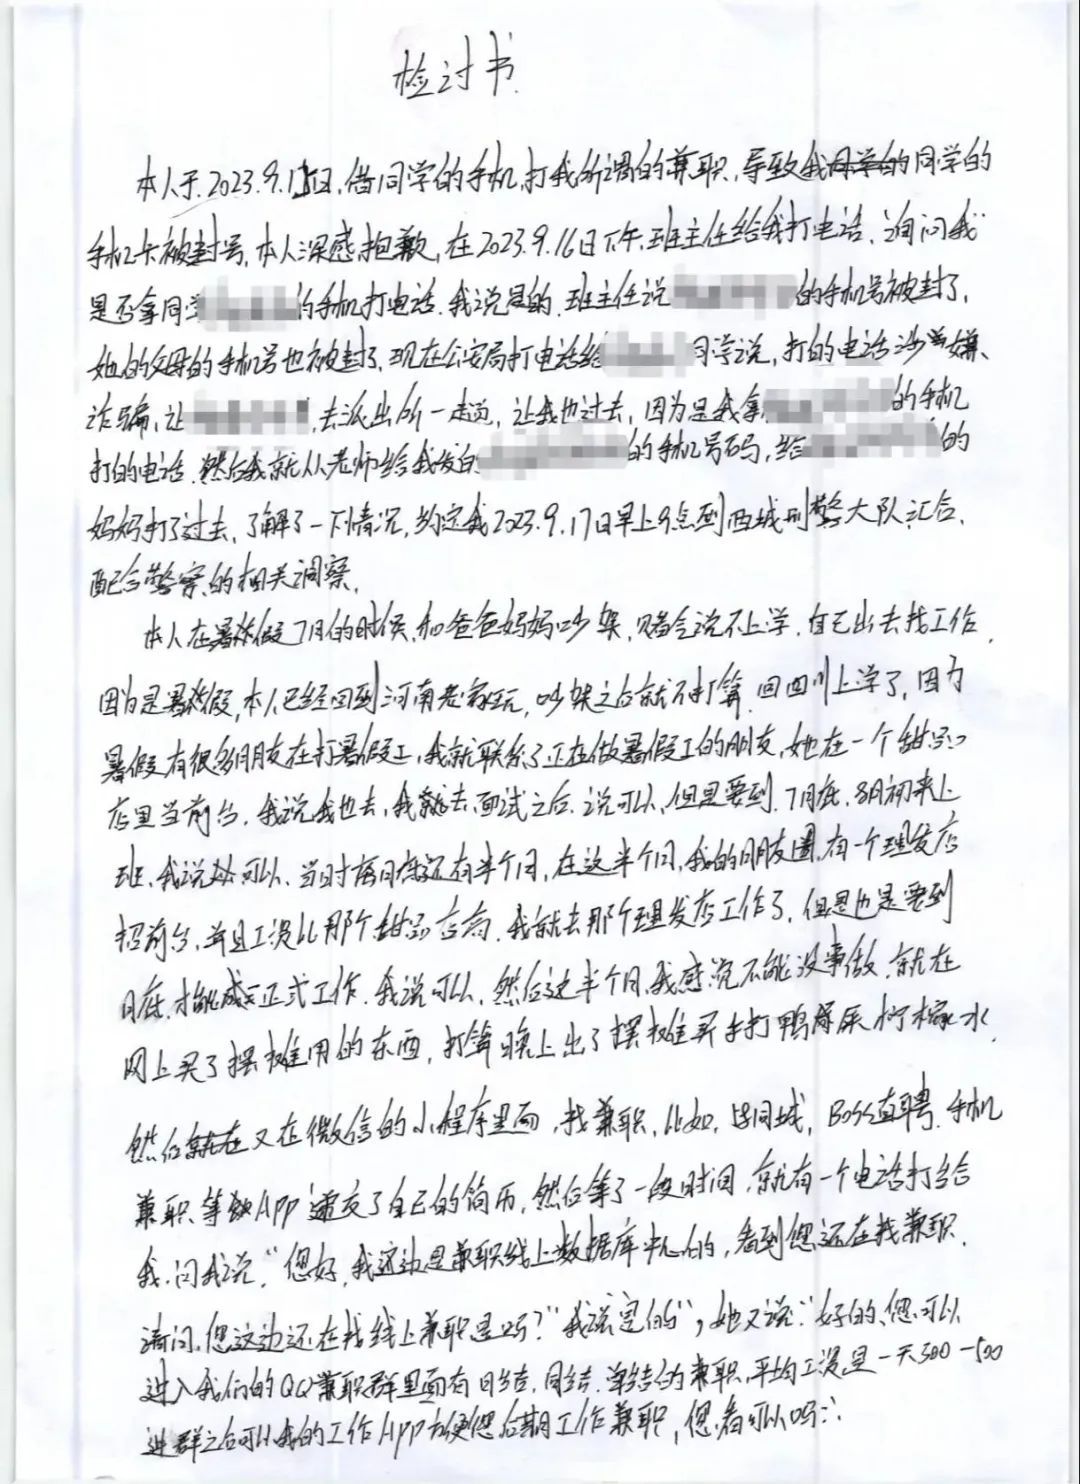 检讨书
本人于2023.9.15日,借同学的手机,打我所谓的兼职,导致我同学的同学的
手机卡被封号,本人深感抱歉,在2023.9.16日下午,班主任给我打电话,询问我
是否拿同学的手机打电话.我说是的.班主任说的手机号被封了,
她的父母的手机号也被封了,现在公安局打电话给同学说,打的电话涉嫌
诈骗,让去派出所一趟,让我也过去,因为是我拿的手机
打的电话.然后我就从老师给我发的的手机号码,给的
妈妈打了过去,了解了一下情况,约定我2023.9.17日早上9点到西城刑警大队汇合,
配合警察的相关调察.
本人在暑假7月的时候,和爸爸妈妈吵架,赌气说不上学.自己出去找工作,
因为是暑假,本人已经回到河南老家玩,吵架之后就不打算回四川上学了,因为
暑假有很多朋友在打暑假工,我就联系了正在做暑假工的朋友,她在一个甜品
店里当前台,我说我也去,我就去面试之后,说可以,但是要到7月底,8月初来上
班,我说可以,当时离月底还有半个月,在这半个月,我的朋友圈,有一个理发店
招前台,并且工资比那个甜品店高,我就去那个理发店工作了,但是也是要到
月底,才能正式工作.我说可以,然后这半个月,我感觉不能没事做,就在
网上买了摆摊用的东西,打算晚上出了摆摊买手打鸭屎香柠檬水,
然后就在又在微信的小程序里面,找兼职,比如,58同城,Boss直聘,手机
兼职等App递交了自己的简历,然后等了一段时间,就有一个电话打给
我,问我说,"您好,我这边是兼职线上数据库中心的,看到您还在找兼职,
请问,您这边还在找线上兼职是吗?"我说是的",她又说:"好的,您可以
进入我们的QQ兼职群里面有日结,周结,单结的兼职,平均工资是一天300-500
进群之后可以我的工作App方便您后期工作兼职,您看可以吗?"